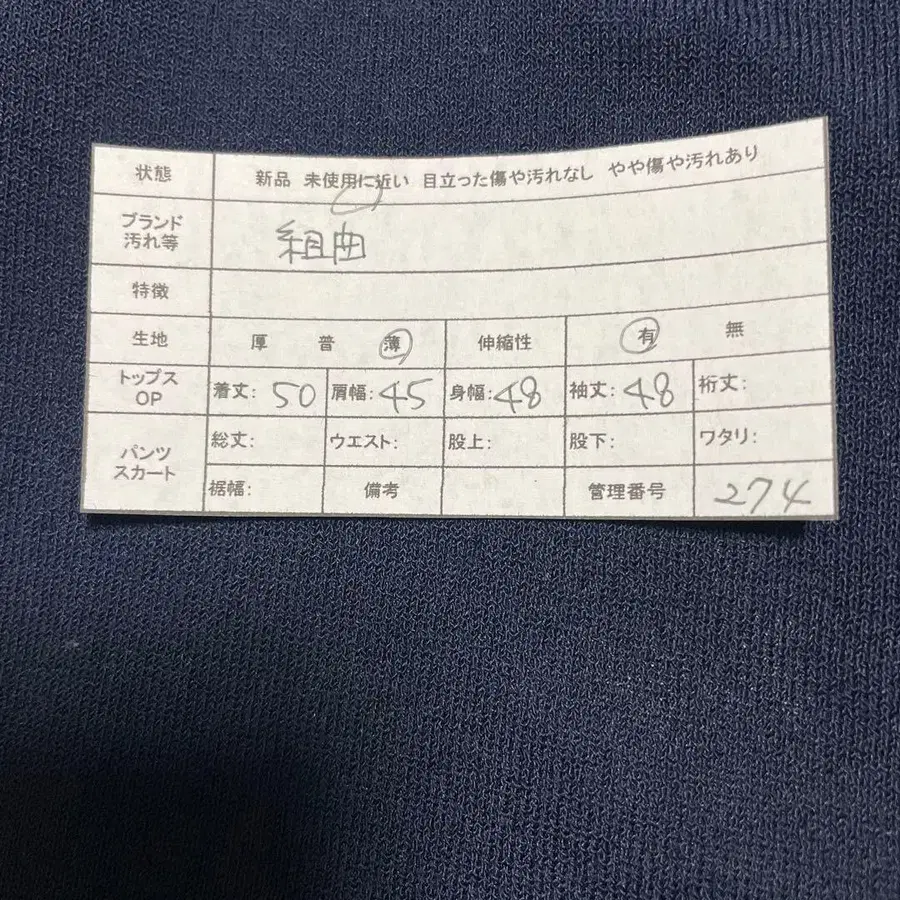 状態 新品 未使用に近い 目立った傷や汚れなし やや傷や汚れあり
ブランド
汚れ等 組曲
特徴
生地 厚 普 薄 伸縮性 有 無
トップス
OP 着丈: 50 肩幅: 45 身幅: 48 袖丈: 48 裄丈:
パンツ
スカート 総丈: ウエスト: 股上: 股下: ワタリ:
裾幅: 備考 管理番号 274